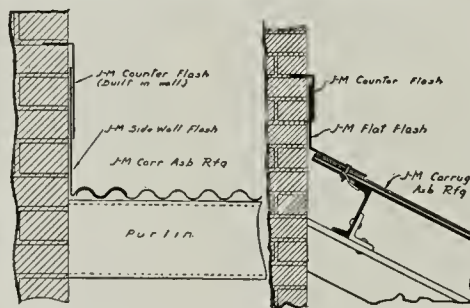 J-M Counter Flash
(built in wall)
J-M Side Wall Flash
J-M Corr Asb Rfg
Purlin
J-M Counter Flash
J-M Flat Flash
J-M Corrug
Asb Rfg